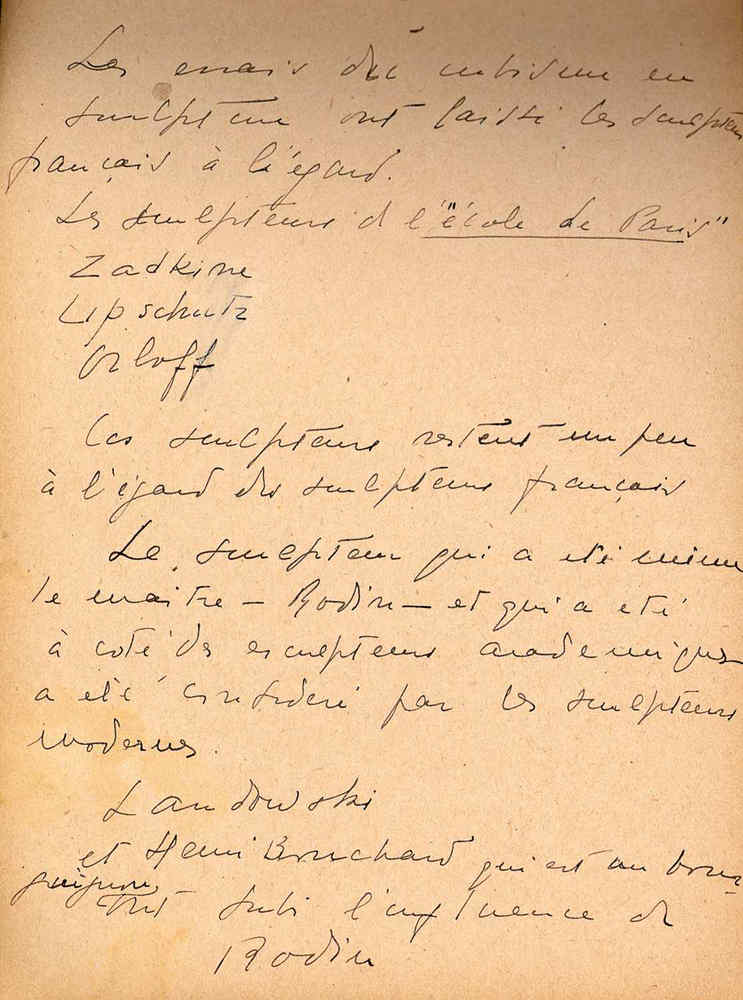 Les essais du cubisme en
sculpture ont laissé les sculpteurs
français à l'égard.
Les sculpteurs d l'"école de Paris"
Zadkine
Lipschutz
Orloff
Ces sculpteurs restent un peu
à l'égard des sculpteurs français
Le sculpteur qui a été même
le maitre – Rodin – et qui a eté
à coté des esculpteurs academiques
a eté consideré par les sculpteurs
modernes.
Landowski
et Henri Bouchard qui est un bour-
guignon
ont subi l'influence de
Rodin